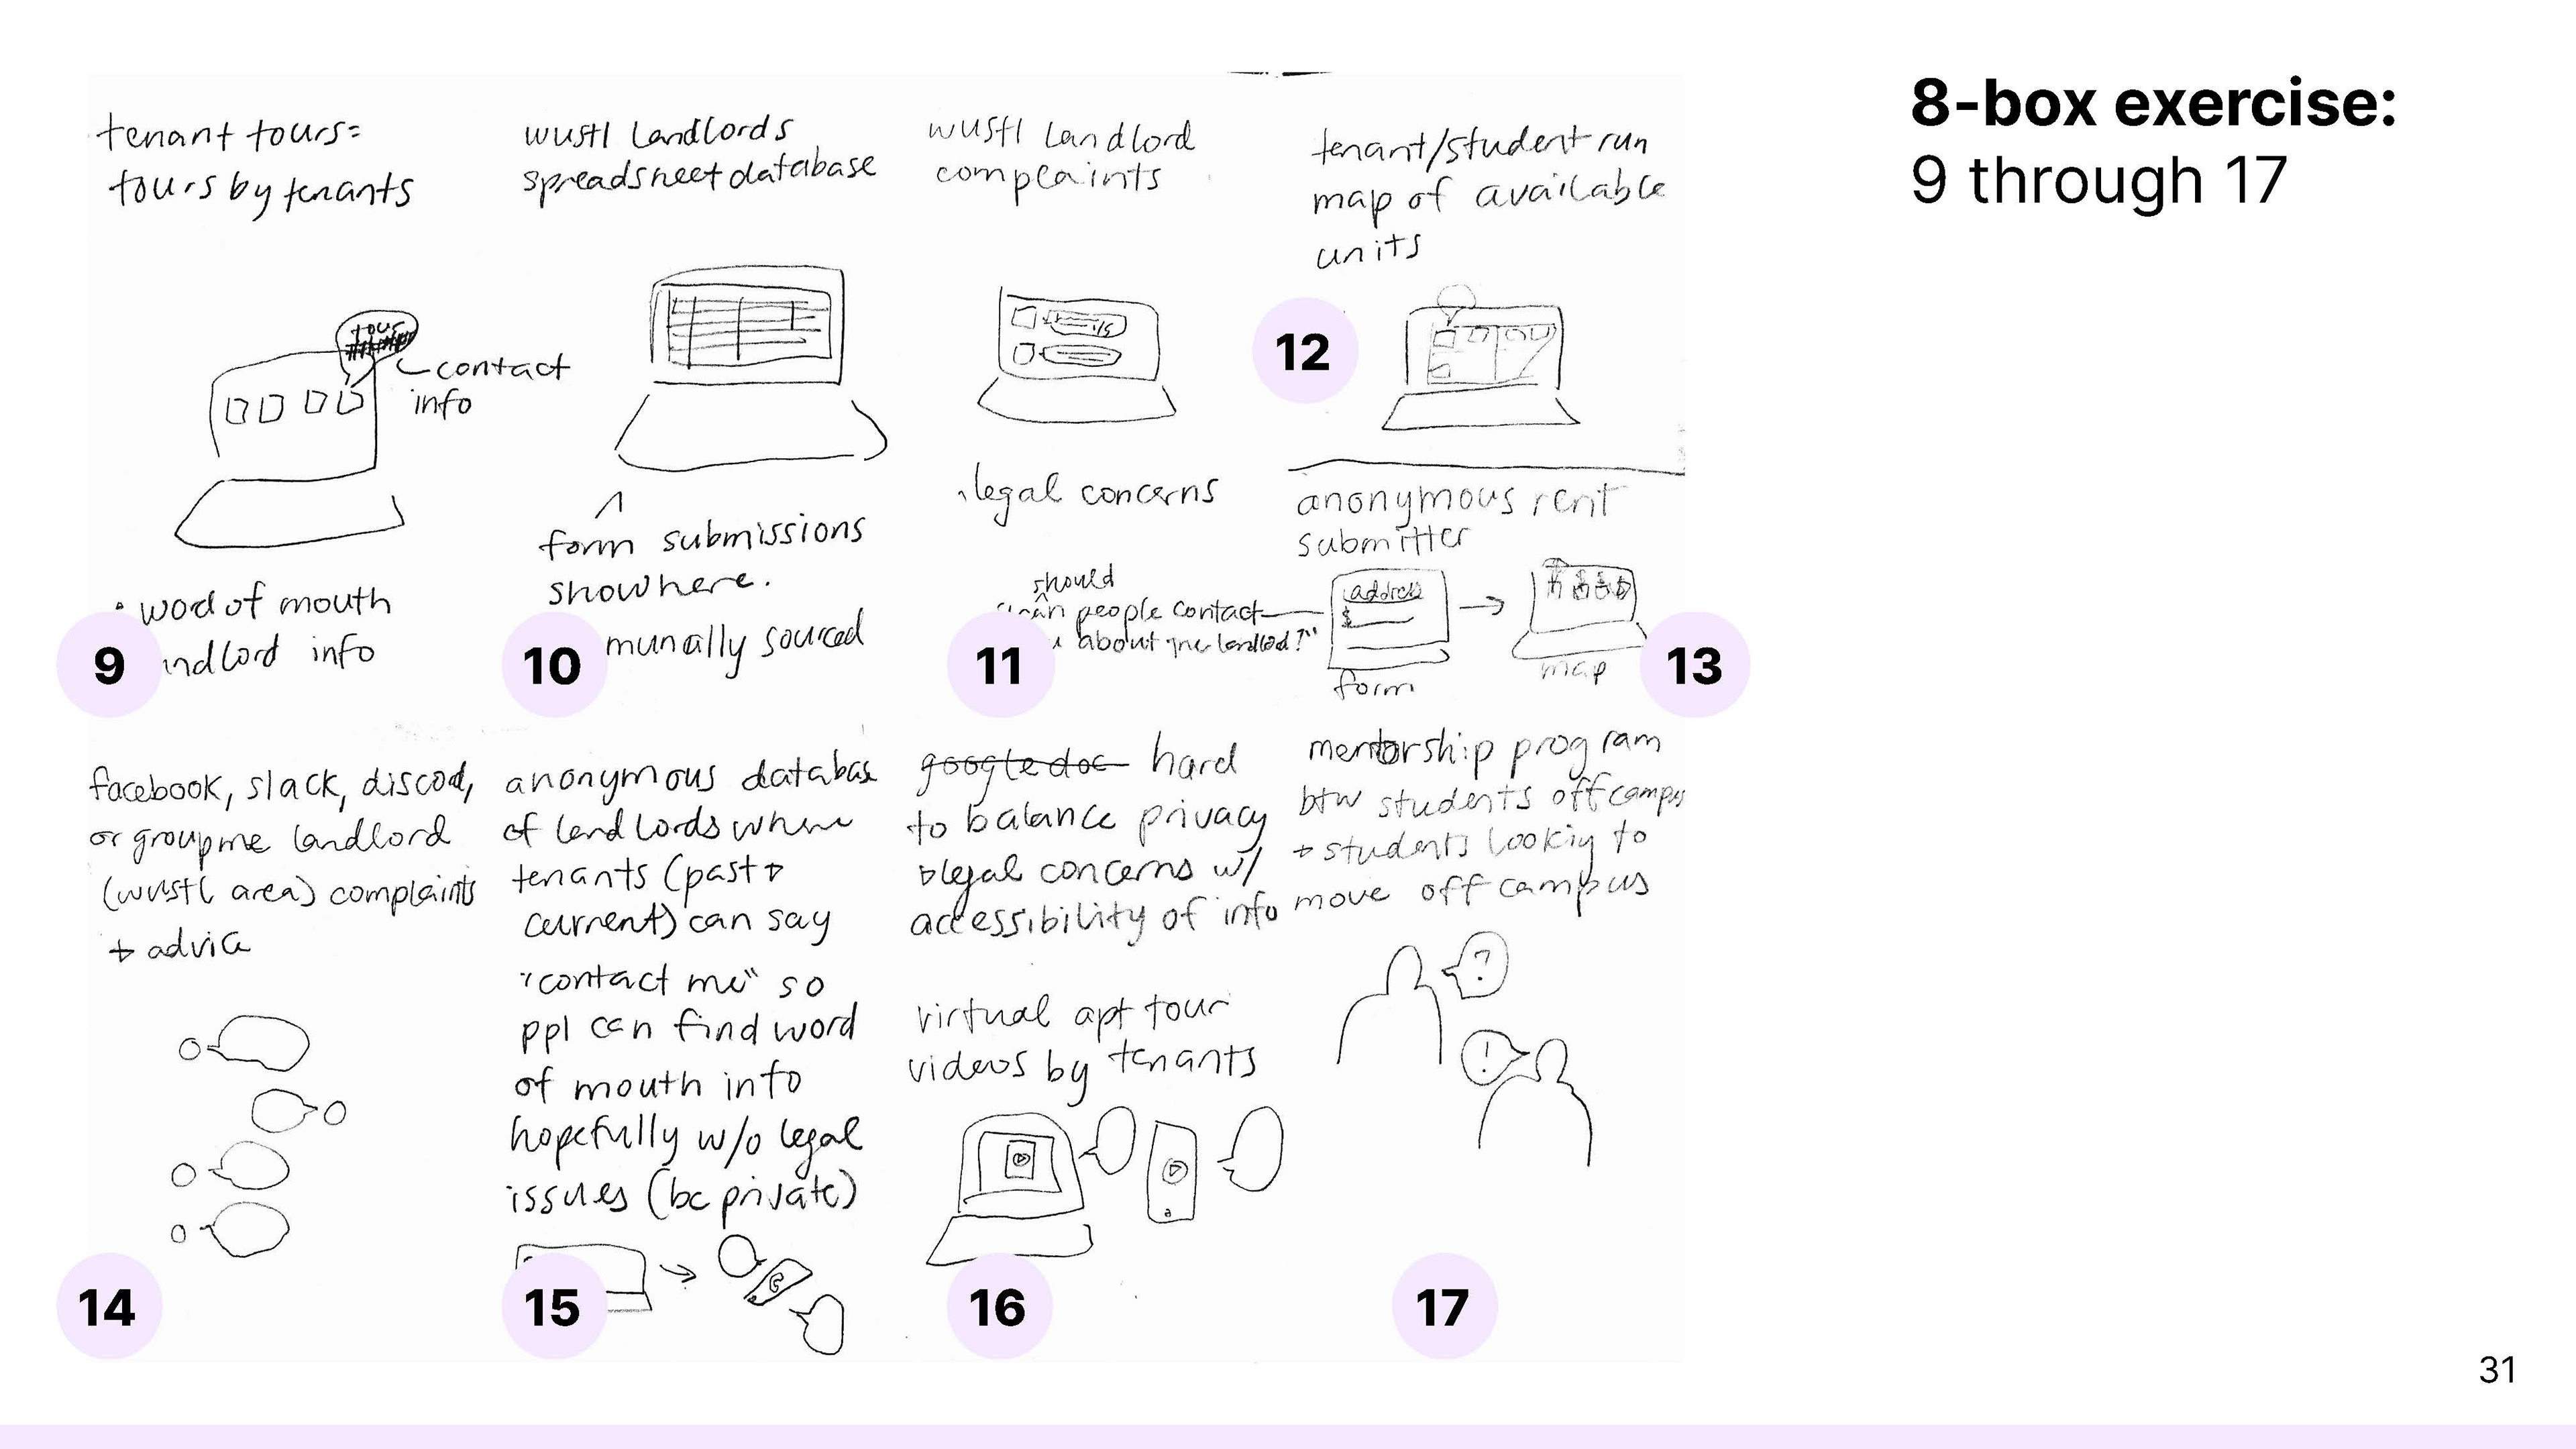 8-box exercise:
9 through 17
tenant tours=
tours by tenants
tour
contact
info
word of mouth
landlord info
9
wustl landlords
spreadsheet database
form submissions
show here.
munally sourced
10
wustl landlord
complaints
legal concerns
11
tenant/student run
map of available
units
12
anonymous rent
submitter
should
people contact
about landlord?"
address
$
form
map
13
facebook, slack, discord,
or groupme landlord
(wustl area) complaints
+ advice
14
anonymous database
of landlords where
tenants (past +
current) can say
"contact me" so
ppl can find word
of mouth info
hopefully w/o legal
issues (bc private)
15
google doc hard
to balance privacy
+ legal concerns w/
accessibility of info
virtual apt tour
videos by tenants
16
mentorship program
btw students off campus
+ students looking to
move off campus
?
!
17
31